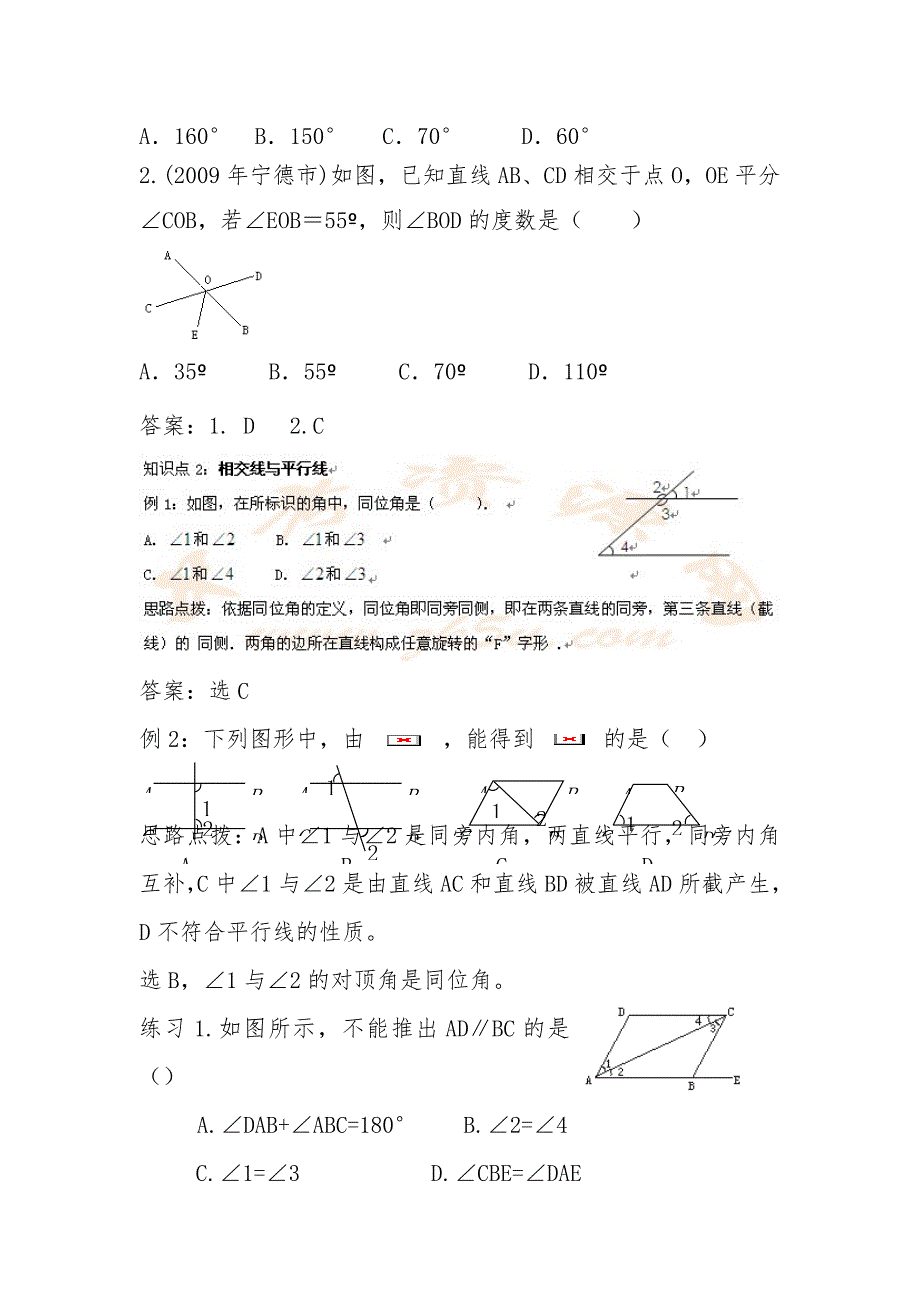 A．160° B．150° C．70° D．60°
2.(2009年宁德市)如图，已知直线AB、CD相交于点O，OE平分
∠COB，若∠EOB＝55º，则∠BOD的度数是（ ）
A
O
D
C
E
B
A．35º B．55º C．70º D．110º
答案：1. D 2.C
知识点2：相交线与平行线
例1：如图，在所标识的角中，同位角是（ ）．
A. ∠1和∠2 B. ∠1和∠3
C. ∠1和∠4 D. ∠2和∠3
2
1
3
4
思路点拨：依据同位角的定义，同位角即同旁同侧，即在两条直线的同旁，第三条直线（截
线）的 同侧．两角的边所在直线构成任意旋转的“F”字形 .
答案：选C
例2：下列图形中，由 ，能得到 的是（ ）
A B A B A B A B
1 1 1 1 2
2 2 2
思路点拨：A中∠1与∠2是同旁内角，两直线平行，同旁内角
互补,C中∠1与∠2是由直线AC和直线BD被直线AD所截产生，
D不符合平行线的性质。
选B，∠1与∠2的对顶角是同位角。
练习1.如图所示，不能推出AD∥BC的是
（）
D
4
C
3
1
2
A
B
E
A.∠DAB+∠ABC=180° B.∠2=∠4
C.∠1=∠3 D.∠CBE=∠DAE